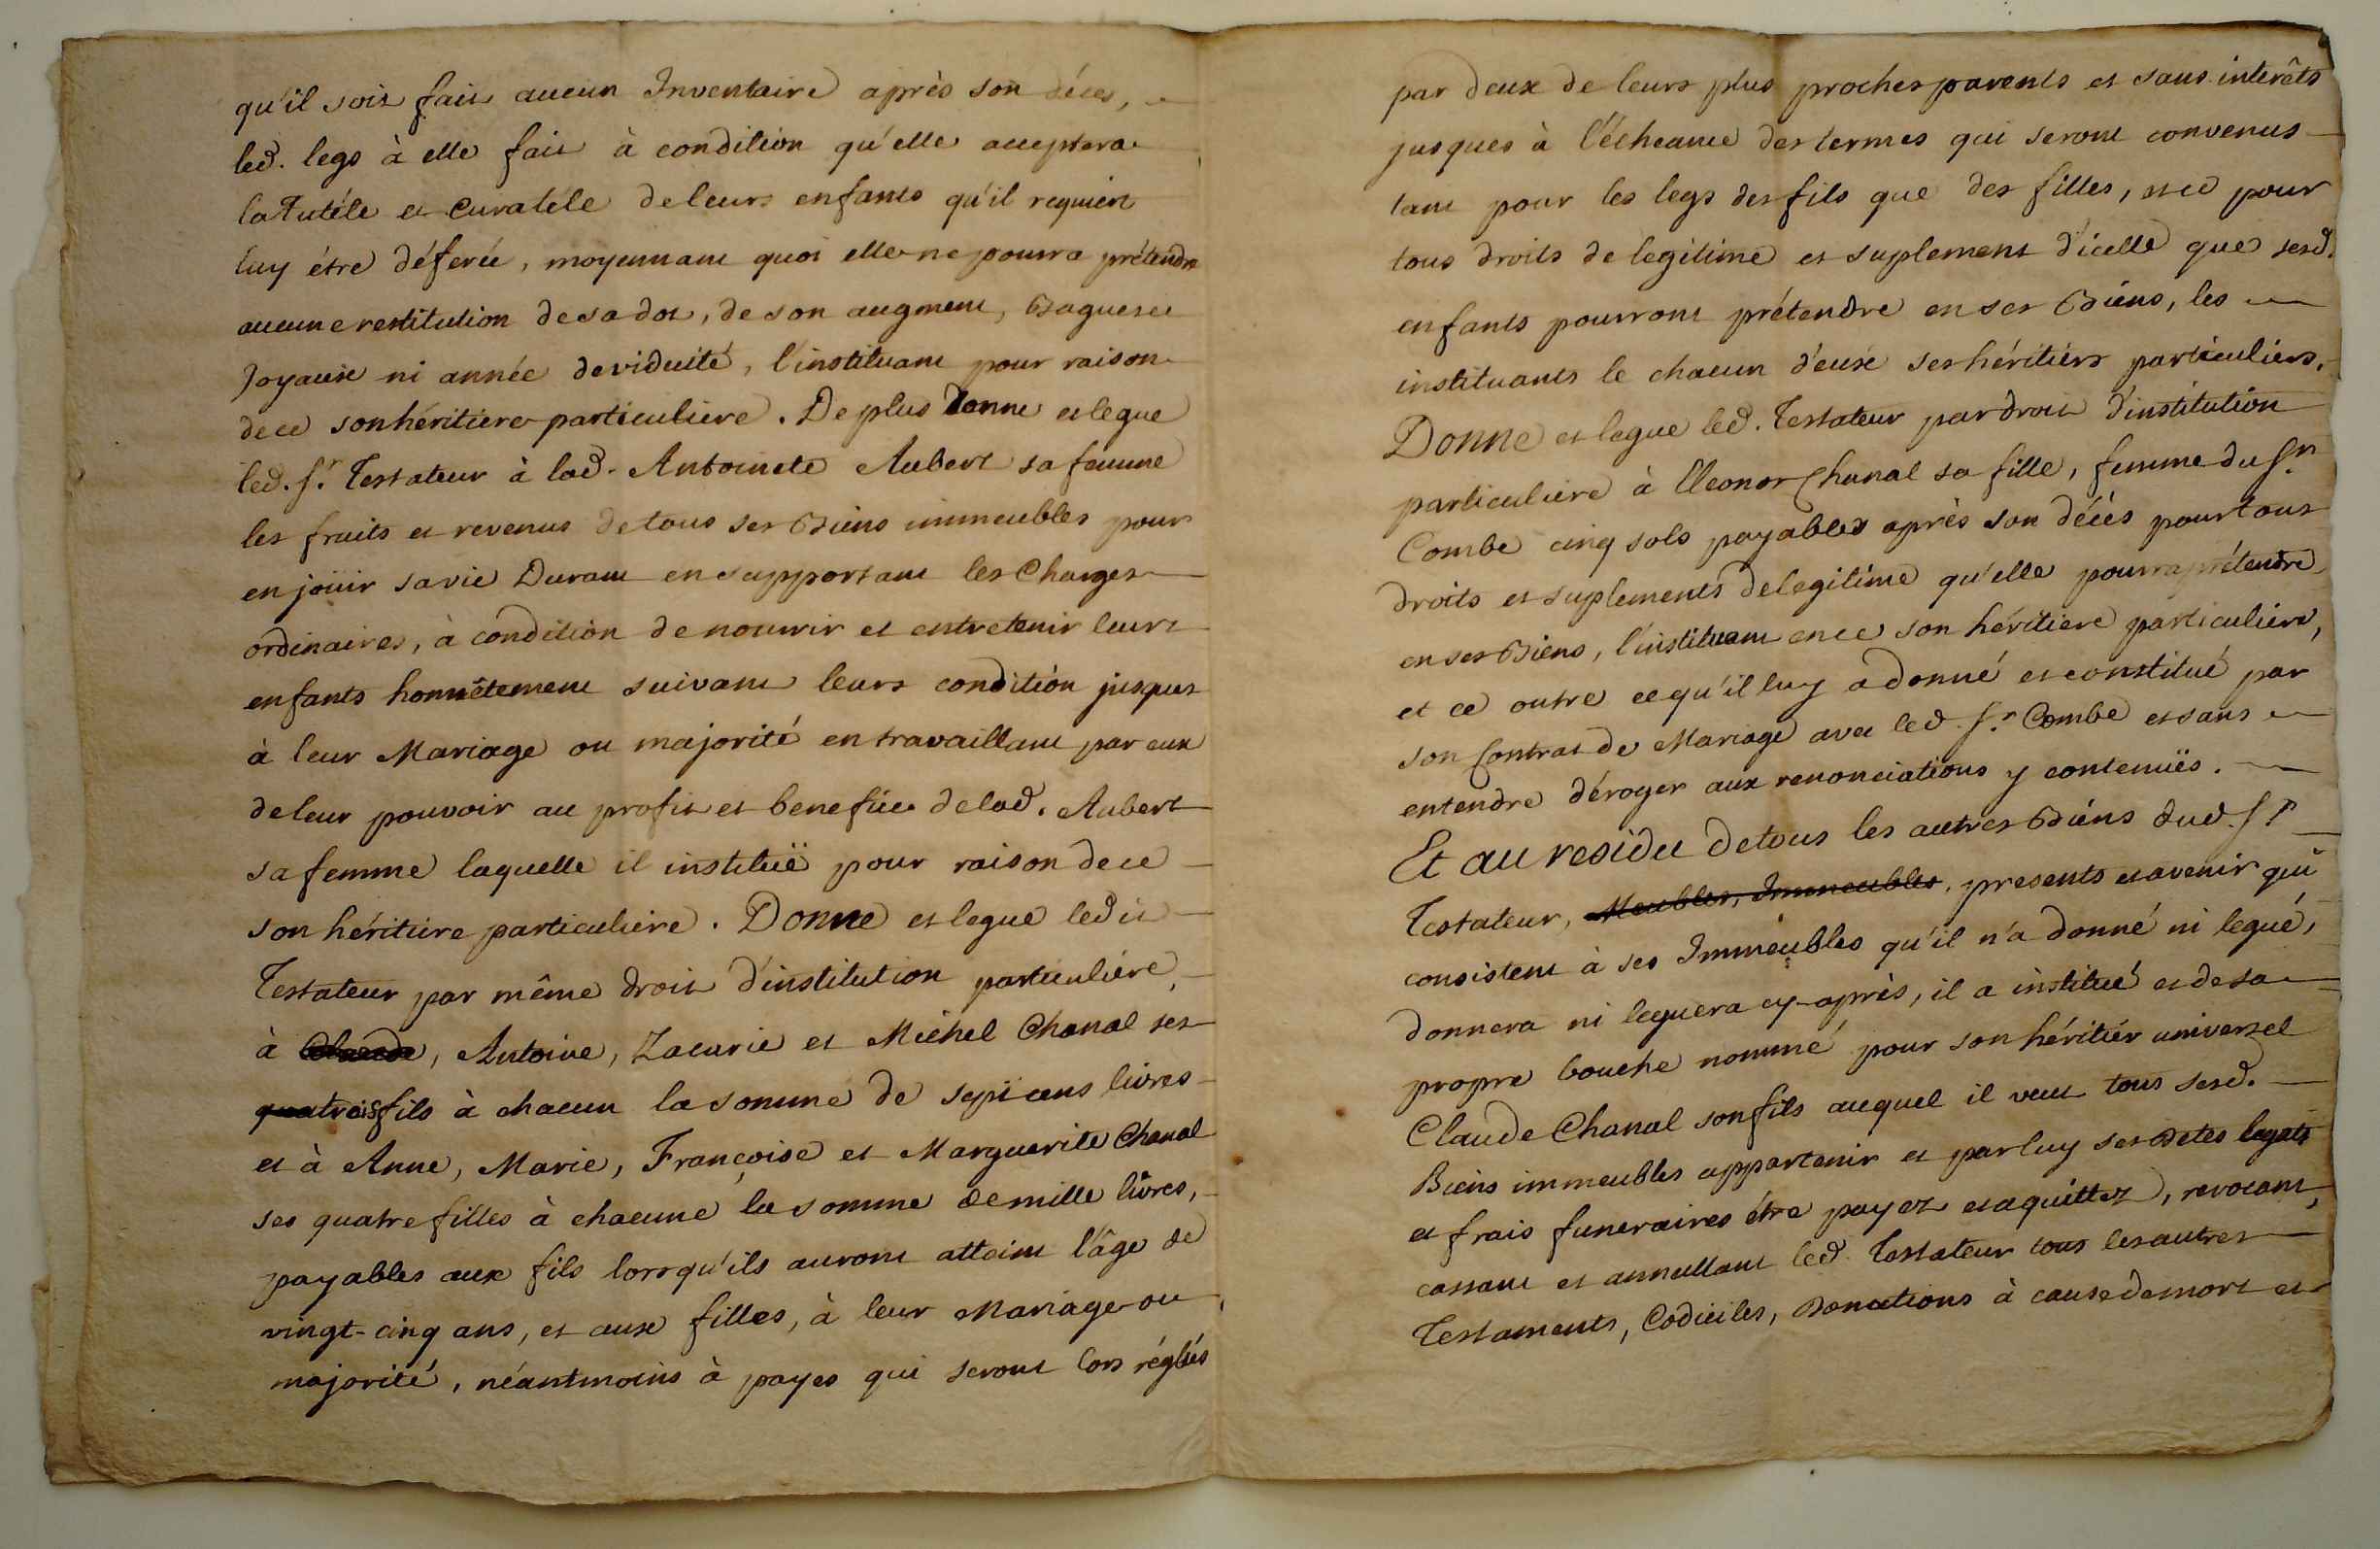 qu'il soit fait aucun Inventaire après son déces,
led. legs à elle fait à condition qu'elle acceptera
la Tutéle et Curatéle de leurs enfants qu'il requiert
luy étre déferée, moyennant quoi elle ne pourra prétendre
aucune restitution de sa dot, de son augment, Bagues et
Joyaux ni année de viduité, l'instituant pour raison
de ce son héritiere particuliere. De plus Donne et legue
led. Sr. Testateur à lad. Antoinete Aubert sa femme
les fruits et revenus de tous ses Biens immeubles pour
en joüir sa vie Durant en supportant les Charges
ordinaires, à condition de nourrir et entretenir leurs
enfants honnêtement suivant leurs condition jusques
à leur Mariage ou majorité en travaillant par eux
de leur pouvoir au profit et benefice de lad. Aubert
sa femme laquelle il instituë pour raison de ce
son héritiere particuliere. Donne et legue ledit
Testateur par même droit d'institution particuliére,
à Claude, Antoine, Zacarie et Michel Chanal ses
fils à chacun la somme de sept cens livres
et à Anne, Marie, Françoise et Marguerite Chanal
ses quatre filles à chacune la somme de mille livres,
payables aux fils lorsqu'ils auront attaint l'âge de
vingt-cinq ans, et aux filles, à leur Mariage ou
majorité, néantmoins à payes qui seront lors réglées
par deux de leurs plus proches parents et sans interêts
jusques à l'écheance des termes qui seront convenus
tant pour les legs des fils que des filles, et ce pour
tous droits de legitime et suplement d'icelle que sesd.
enfants pourront prétendre en ses Biens, les
instituants le chacun d'eux ses héritiérs particuliers.
Donne et legue led. Testateur par droit d'institution
particuliere à Eleonor Chanal sa fille, femme du Sr.
Combe cinq sols payables après son décès pour tous
droits et suplements de legitime qu'elle pourra prétendre
en ses Biens, l'instituant en ce son héritiere particuliere,
et ce outre ce qu'il luy a donné et constitué par
son Contrat de Mariage avec led. Sr. Combe et sans
entendre déroger aux renonciations y contenües.
Et au residu de tous les autres Biéns dud. Sr.
Testateur, Meubles, Immeubles, presents et avenir qui
consistent à ses Immeubles qu'il n'a donné ni legué,
donnera ni leguera cy-après, il a institué et de sa
propre bouche nommé pour son héritiér universel
Claude Chanal son fils auquel il veut tous sesd.
Biens immeubles appartenir et par luy ses Detes legats
et frais funeraires étre payez et aquittez, revocant,
cassant et annullant led. Testateur tous les autres
Testaments, Codiciles, Donations à cause de mort et